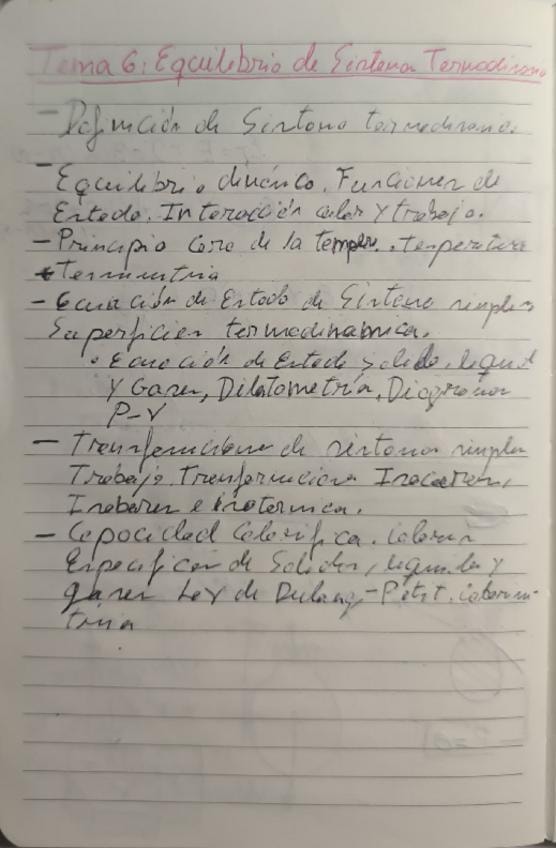 Tema 6: Equilibrio de Sistema Termodinam
- Definición de Sistema termodinamico
- Equilibrio dinámico. Funciones de
Estado. Interacción calor y trabajo.
- Principio Cero de la temper. Temperatura
Termometria
- Ecuación de Estado de Sistema simples
Superficies termodinamica.
• Ecuación de Estado Solido, liquid
y Gases, Dilatometría, Diagrama
P-V
- Transformaciones de sistemas simples
Trabajo. Transformaciones Isocoras,
Isobaras e isotermica.
- Capacidad Calorifica. Calores
Especificos de Solidos, liquidos y
gases Ley de Dulong-Petit. calorime-
tria